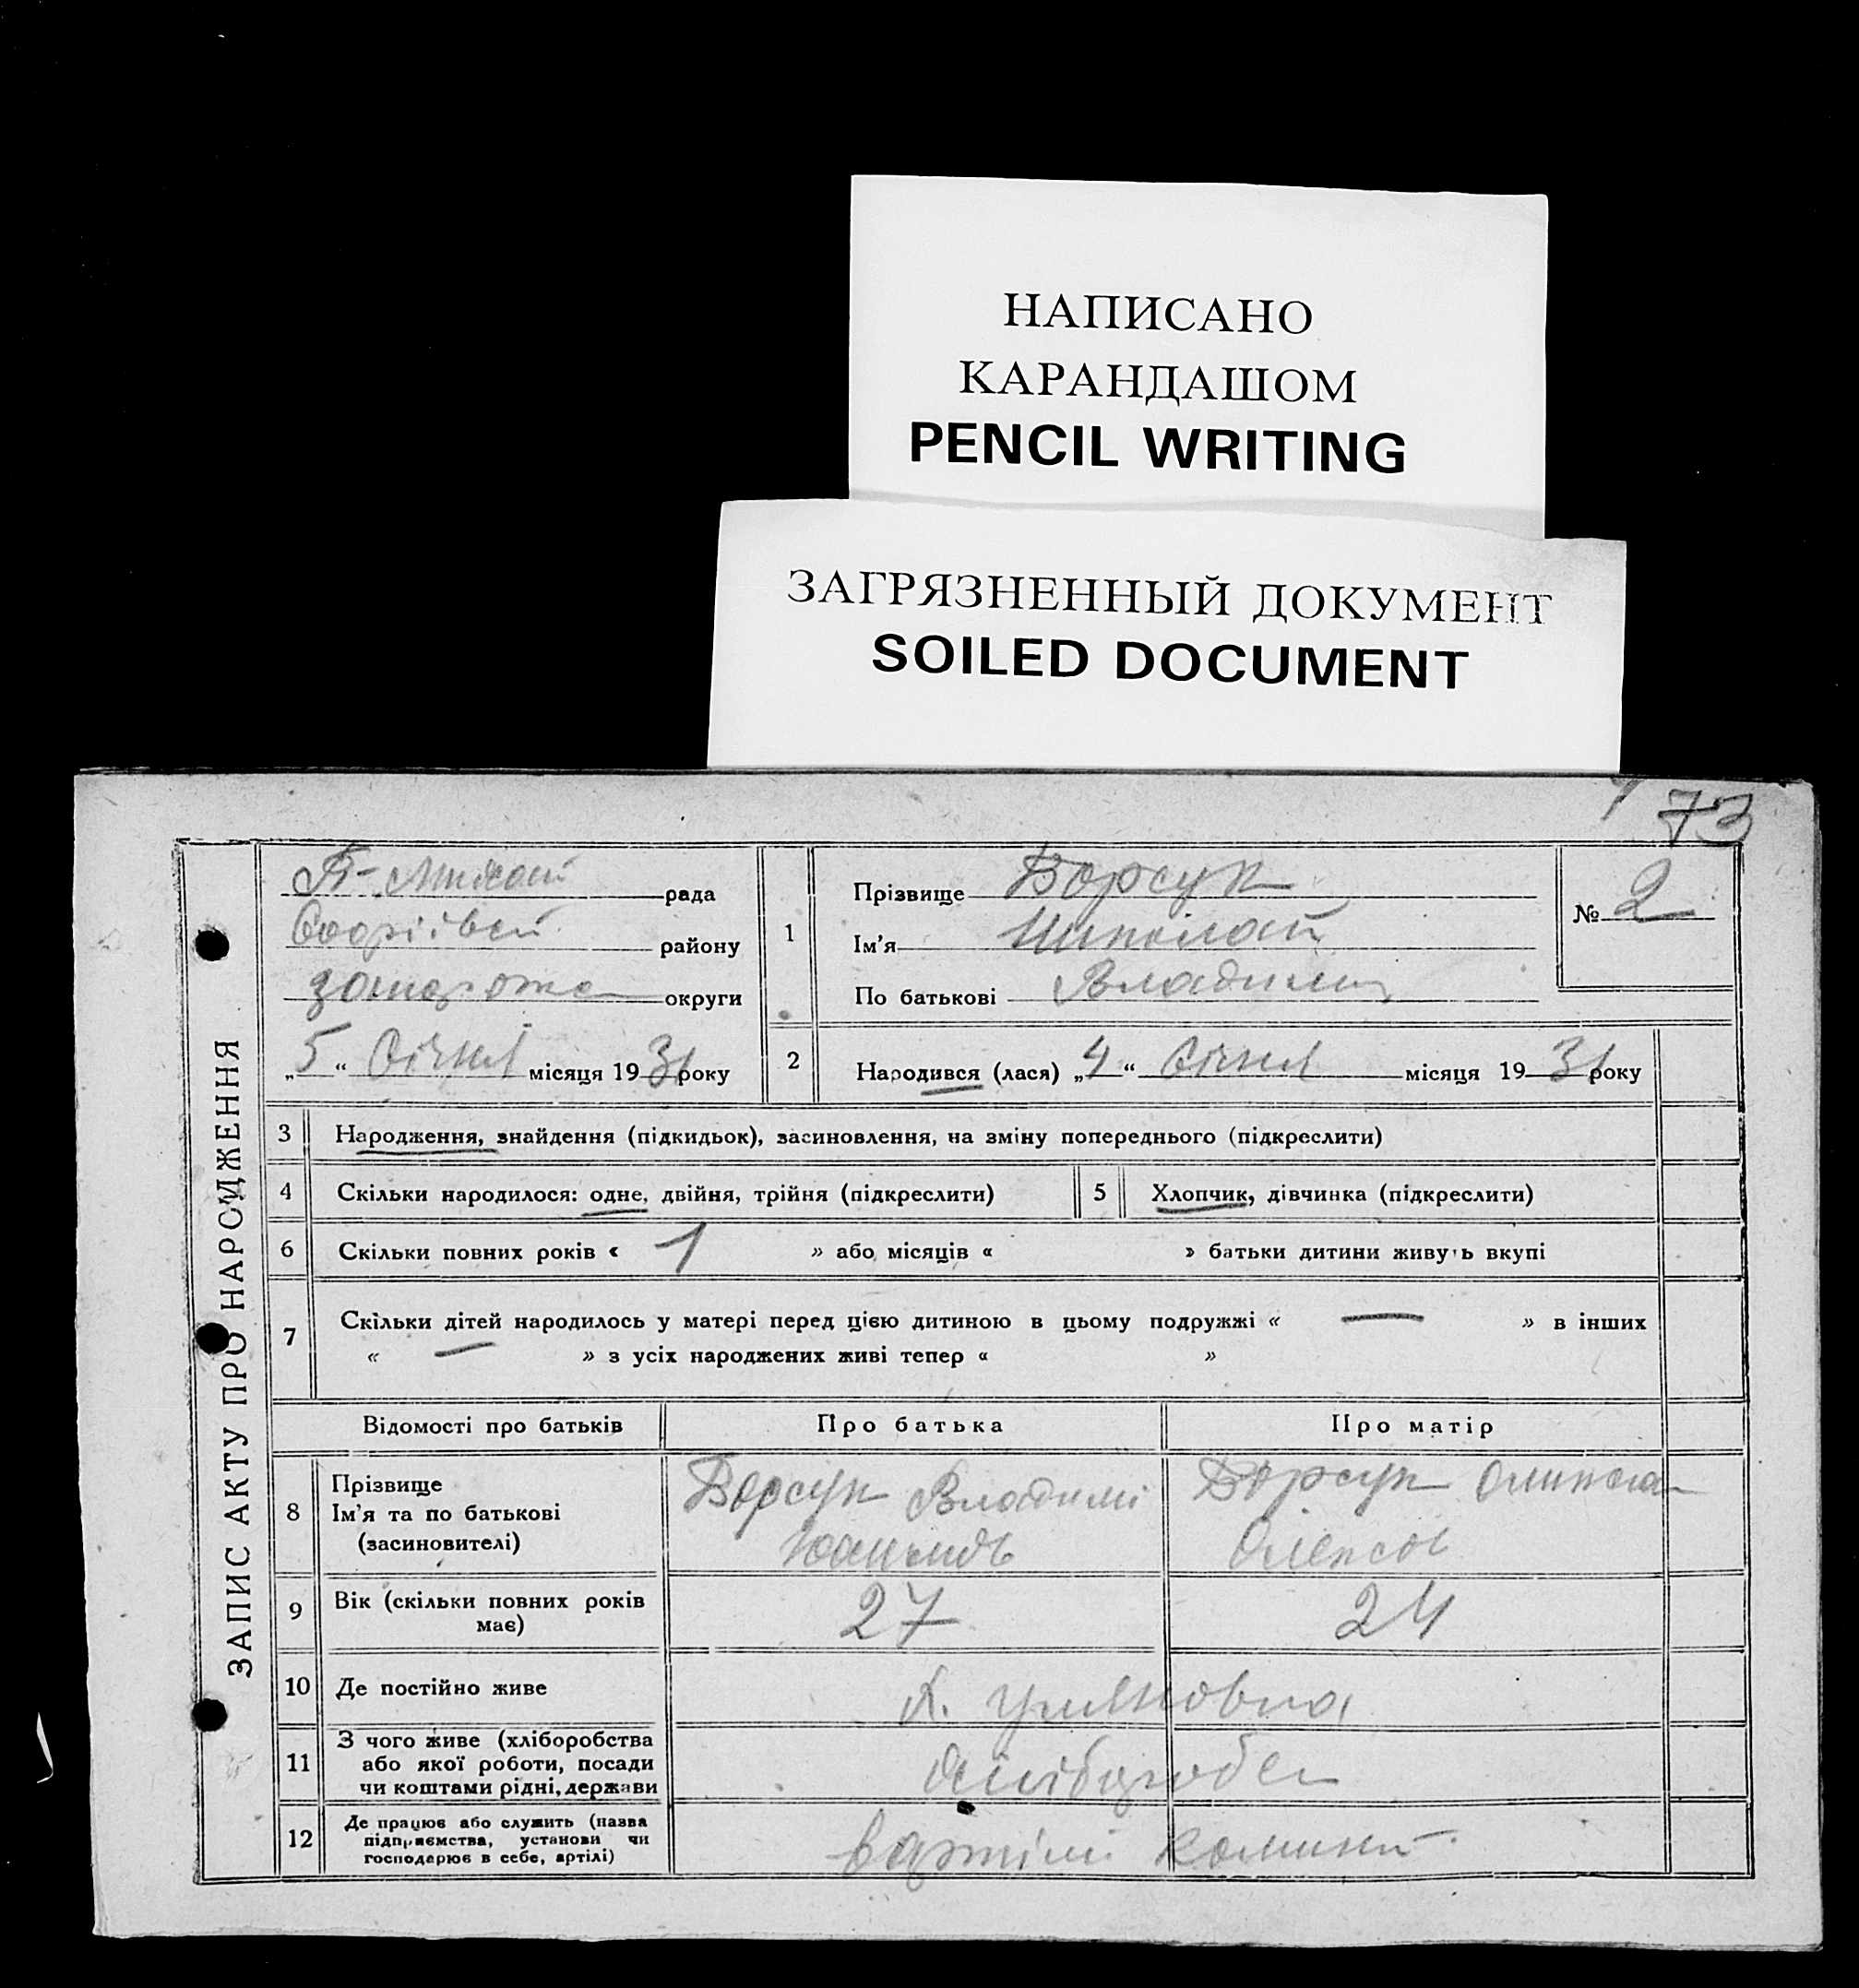 НАПИСАНО
КАРАНДАШОМ
PENCIL WRITING
ЗАГРЯЗНЕННЫЙ ДОКУМЕНТ
SOILED DOCUMENT
73
ЗАПИС АКТУ ПРО НАРОДЖЕННЯ
рада
району
округи
„5“ Січня місяця 1931 року
1
Прізвище Борсук
Ім'я Николай
По батькові Владим
№ 2
2
Народився (лася) „4“ Січня місяця 1931 року
3 Народження, знайдення (підкидьок), засиновлення, на зміну попереднього (підкреслити)
4 Скільки народилося: одне, двійня, трійня (підкреслити) 5 Хлопчик, дівчинка (підкреслити)
6 Скільки повних років « 1 » або місяців « » батьки дитини живуть вкупі
7 Скільки дітей народилось у матері перед цією дитиною в цьому подружжі « — » в інших
« — » з усіх народжених живі тепер « »
Відомості про батьків Про батька Про матір
8 Прізвище
Ім'я та по батькові
(засиновителі)
Борсук Владимі
Борсук
9 Вік (скільки повних років
має)
27 24
10 Де постійно живе
11 З чого живе (хліборобства
або якої роботи, посади
чи коштами рідні, держави
12 Де працює або служить (назва
підприємства, установи чи
господарює в себе, артілі)
в артілі